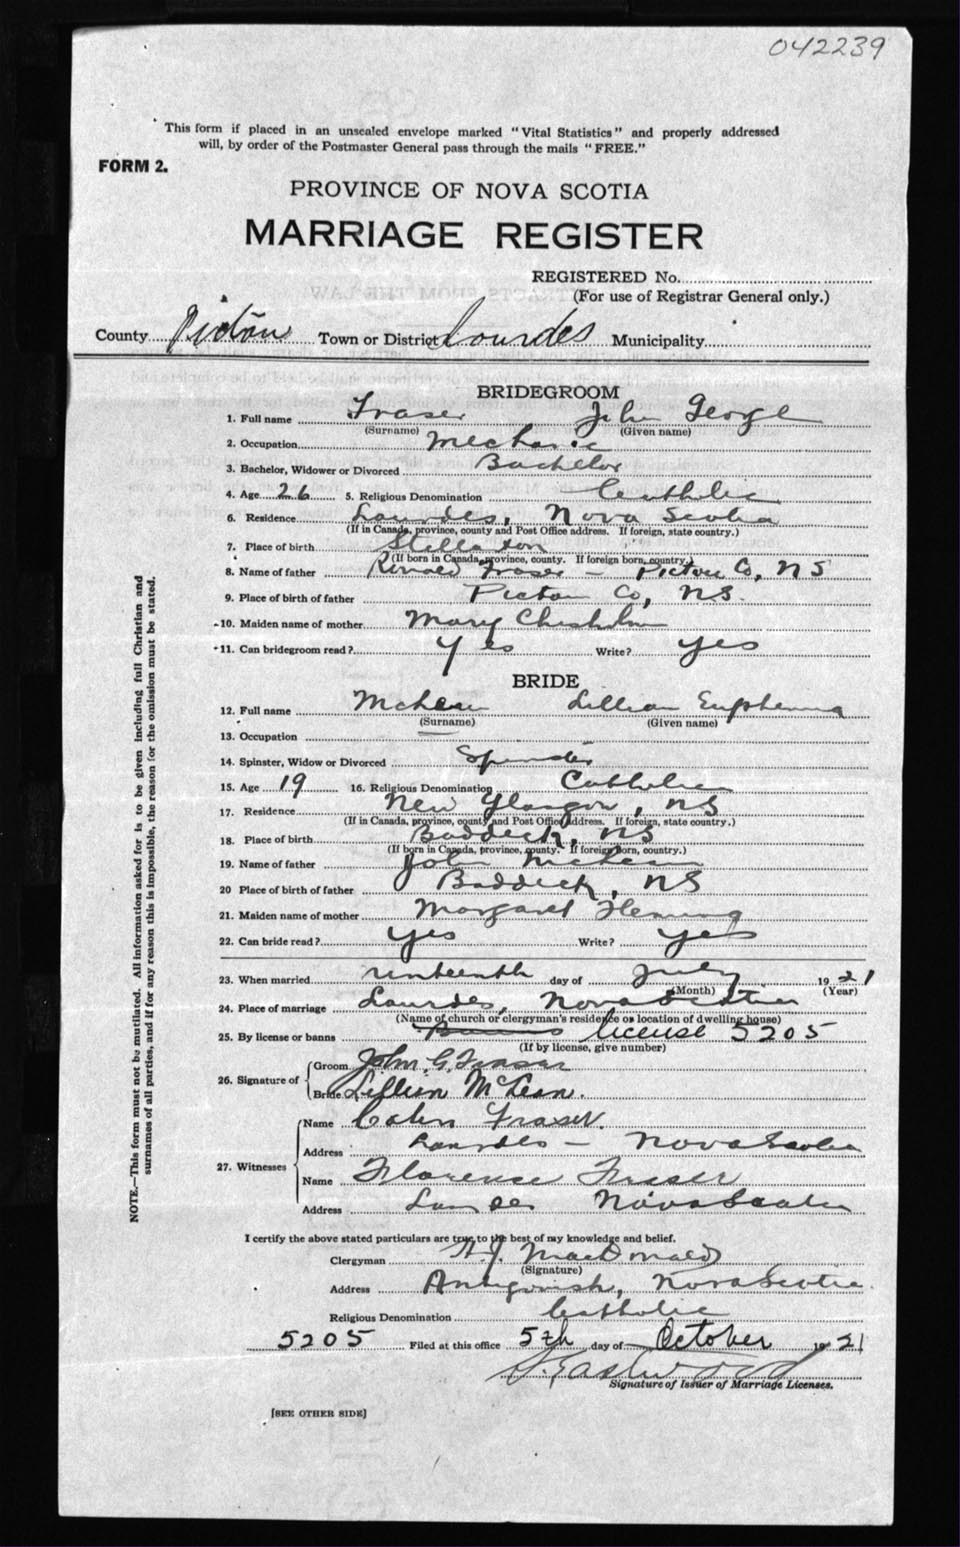 042239
This form if placed in an unsealed envelope marked "Vital Statistics" and properly addressed
will, by order of the Postmaster General pass through the mails "FREE."
FORM 2.
PROVINCE OF NOVA SCOTIA
MARRIAGE REGISTER
REGISTERED No.
(For use of Registrar General only.)
County Pictou Town or District Lourdes Municipality
BRIDEGROOM
1. Full name Fraser John George
(Surname) (Given name)
2. Occupation Mechanic
3. Bachelor, Widower or Divorced Bachelor
4. Age 26 5. Religious Denomination Catholic
6. Residence Lourdes, Nova Scotia
(If in Canada, province, county and Post Office address. If foreign, state country.)
7. Place of birth Stellarton
(If born in Canada, province, county. If foreign born, country.)
8. Name of father Ronald Fraser - Pictou Co, NS
9. Place of birth of father Pictou Co, NS.
10. Maiden name of mother Mary Chisholm
11. Can bridegroom read? Yes Write? yes
BRIDE
12. Full name McLean Lillian Euphemia
(Surname) (Given name)
13. Occupation
14. Spinster, Widow or Divorced Spinster
15. Age 19 16. Religious Denomination Catholic
17. Residence New Glasgow, NS
(If in Canada, province, county and Post Office address. If foreign, state country.)
18. Place of birth Baddeck, NS
(If born in Canada, province, county. If foreign born, country.)
19. Name of father John McLean
20 Place of birth of father Baddeck, NS
21. Maiden name of mother Margaret Fleming
22. Can bride read? yes Write? yes
23. When married day of July 1921
(Month) (Year)
24. Place of marriage Lourdes, Nova Scotia
(Name of church or clergyman's residence or location of dwelling house)
25. By license or banns Banns license 5205
(If by license, give number)
26. Signature of Groom John G. Fraser
Bride Lillian McLean.
27. Witnesses Name Fraser.
Address Lourdes - Nova Scotia
Name Florence Fraser
Address Lourdes Nova Scotia
I certify the above stated particulars are true to the best of my knowledge and belief.
Clergyman MacDonald
(Signature)
Address Antigonish, Nova Scotia.
Religious Denomination Catholic
5205 Filed at this office 5th day of October 1921
Eastwood
Signature of Issuer of Marriage Licenses.
[SEE OTHER SIDE]
NOTE.—This form must not be mutilated. All information asked for is to be given including full Christian and
surnames of all parties, and if for any reason this is impossible, the reason for the omission must be stated.